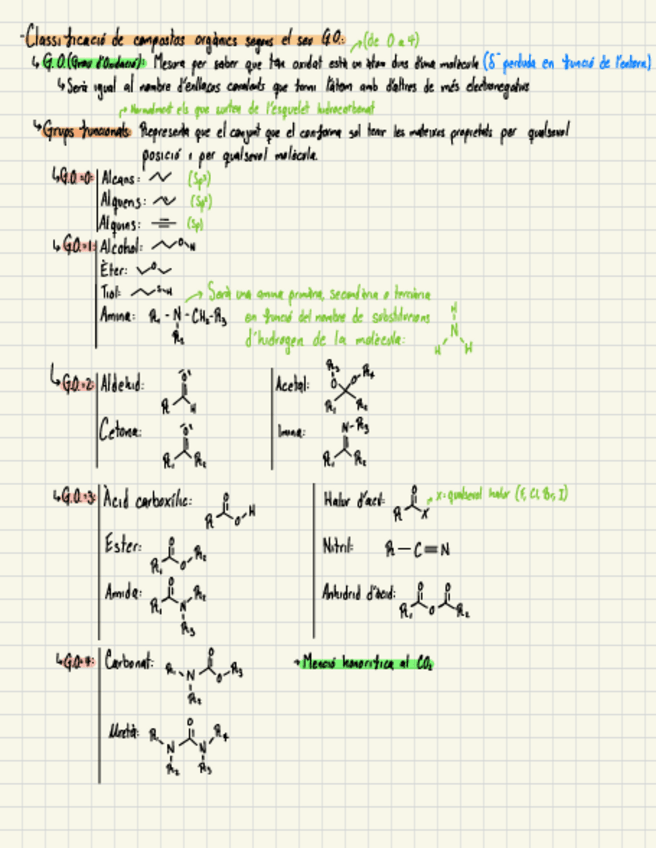 -Classificació de compostos orgànics segons el seu G.O.: → (de 0 a 4)
↳ G.O. (Grau d'Oxidació): Mesura per saber que tan oxidat està un àtom dins d'una molècula (δ⁻ perduda en funció de l'entorn)
↳ Serà igual al nombre d'enllaços covalents que formi l'àtom amb d'altres de més electronegatius
Normalment els que surten de l'esquelet hidrocarbonat
↳ Grups funcionals: Representa que el conjunt que el conforma sol tenir les mateixes propietats per qualsevol
posició i per qualsevol molècula.
↳ G.O.=0: Alcans: (Sp³)
Alquens: (Sp²)
Alquins: (Sp)
↳ G.O.=1: Alcohol: O H
Èter: O
Tiol: S-H
→ Serà una amina primària, secundària o terciària
Amina: R₁-N-CH₂-R₃ en funció del nombre de substitucions
R₂ d'hidrogen de la molècula: H N H H
↳ G.O.=2: Aldehid: O R H
Acetal: R₃ O O-R₄ R₁ R₂
Cetona: O R₁ R₂
Imina: N-R₃ R₁ R₂
↳ G.O.=3: Àcid carboxílic: O R O H
Halur d'àcid: O R X → X: qualsevol halur (F, Cl, Br, I)
Ester: O R₁ O R₂
Nitril: R-C≡N
Amida: O R₁ N R₂ R₃
Anhídrid d'àcid: O O R₁ O R₂
↳ G.O.=4: Carbonat: R₁ N O O R₃ R₂
→ Menció honorífica al CO₂
Uretà: R₁ N O N R₄ R₂ R₃